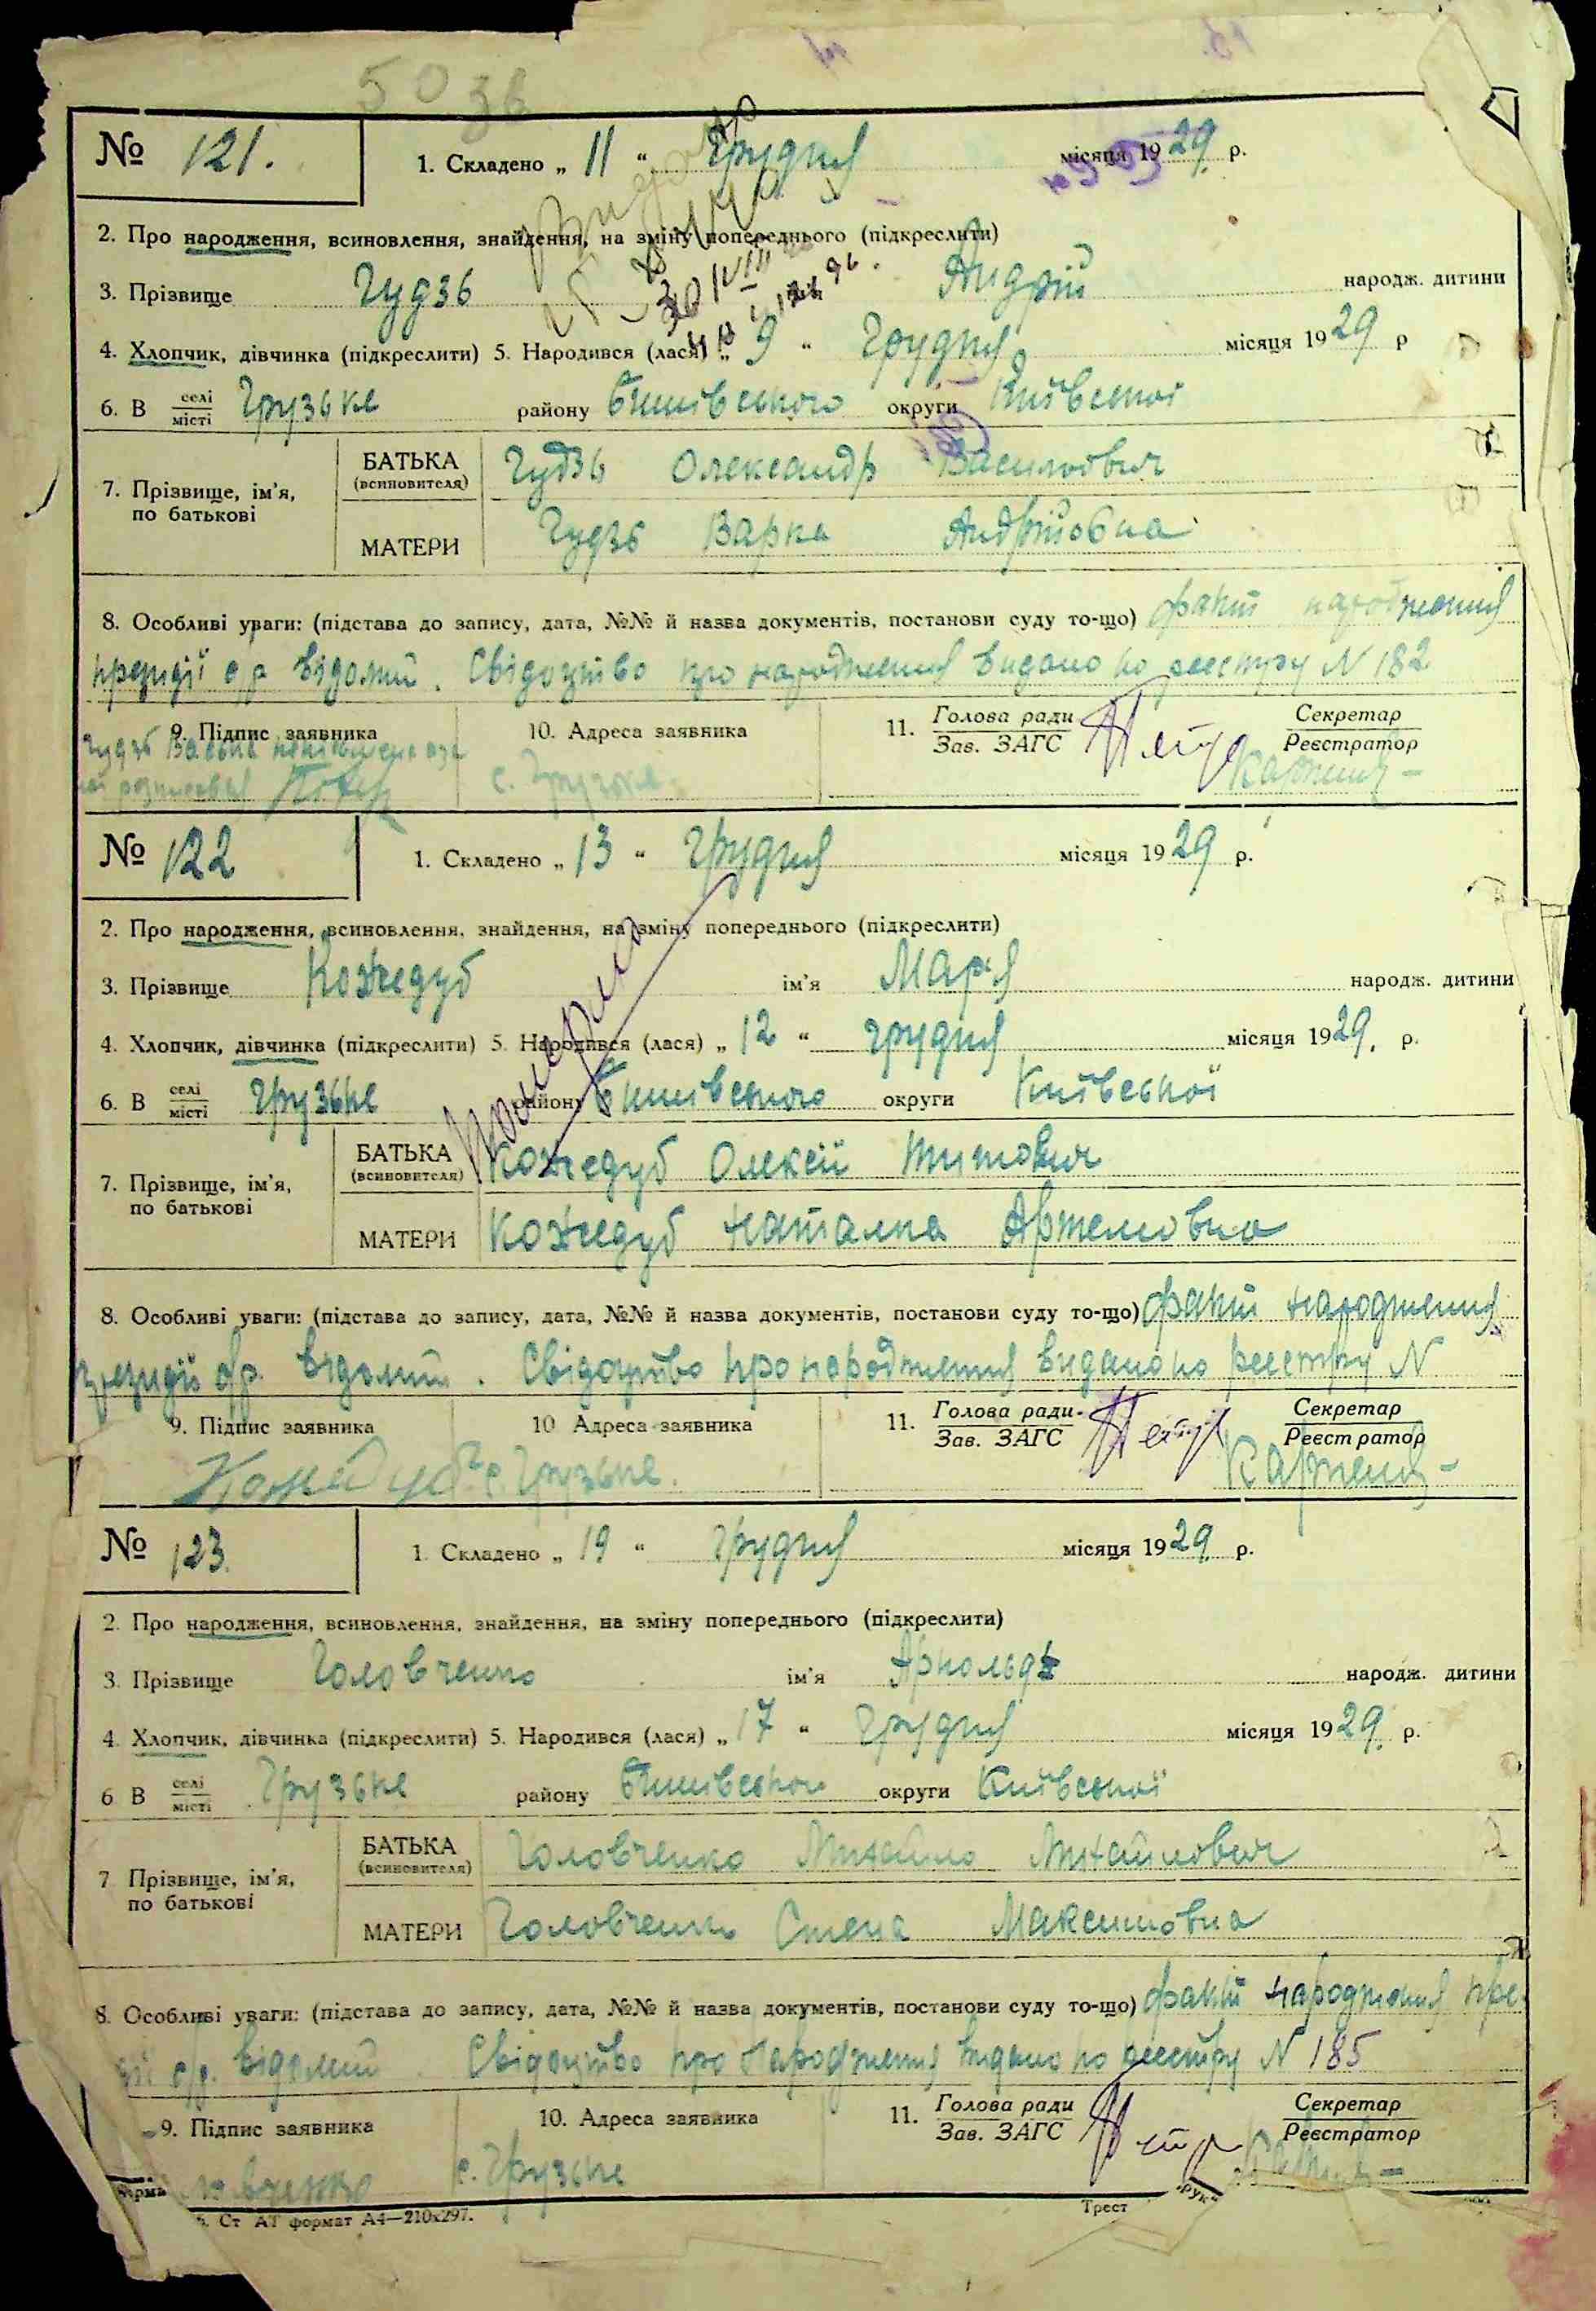 № 121. 1. Складено „ 11 “ Грудня місяця 1929 р.
2. Про народження, всиновлення, знайдення, на зміну попереднього (підкреслити)
3. Прізвище Гудзь Андрій народж. дитини
4. Хлопчик, дівчинка (підкреслити) 5. Народився (лася) „ 9 “ Грудня місяця 1929 р
6. В селі місті Грузьке району Бишівського округи Київської
7. Прізвище, ім'я, по батькові
БАТЬКА (всиновителя) Гудзь Олександр Васильович
МАТЕРИ Гудзь Варка Андрійовна
8. Особливі уваги: (підстава до запису, дата, №№ й назва документів, постанови суду то-що) факт народження
президії с/р відомий. Свідоцтво про народження видано по реєстру N 182
9. Підпис заявника 10. Адреса заявника 11. Голова ради Зав. ЗАГС Секретар Реєстратор
Гудзь
с. Грузьке.
№ 122 1. Складено „ 13 “ Грудня місяця 1929 р.
2. Про народження, всиновлення, знайдення, на зміну попереднього (підкреслити)
3. Прізвище Кожедуб ім'я Марія народж. дитини
4. Хлопчик, дівчинка (підкреслити) 5. Народився (лася) „ 12 “ грудня місяця 1929. р.
6. В селі місті Грузьке району Бишівського округи Київської
померла
7. Прізвище, ім'я, по батькові
БАТЬКА (всиновителя) Кожедуб Олексій Титович
МАТЕРИ Кожедуб Наталка Артемовна
8. Особливі уваги: (підстава до запису, дата, №№ й назва документів, постанови суду то-що) факт народження
президії с/р. відомий. Свідоцтво про народження видано по реєстру N
9. Підпис заявника 10 Адреса заявника 11. Голова ради Зав. ЗАГС Секретар Реєстратор
Кожедуб с. Грузьке.
№ 123. 1. Складено „ 19 “ Грудня місяця 1929. р.
2. Про народження, всиновлення, знайдення, на зміну попереднього (підкреслити)
3. Прізвище Головченко ім'я Арнольд народж. дитини
4. Хлопчик, дівчинка (підкреслити) 5. Народився (лася) „ 17 “ Грудня місяця 1929. р.
6 В селі місті Грузьке району Бишівського округи Київської
7 Прізвище, ім'я, по батькові
БАТЬКА (всиновителя) Головченко Михайло Михайлович
МАТЕРИ Головченко Степа Максимовна
8. Особливі уваги: (підстава до запису, дата, №№ й назва документів, постанови суду то-що) факт народження пре-
зії с/р. відомий. Свідоцтво про народження видано по реєстру N 185
9. Підпис заявника 10. Адреса заявника 11. Голова ради Зав. ЗАГС Секретар Реєстратор
с. Грузьке
Ст АТ формат А4—210x297. Трест